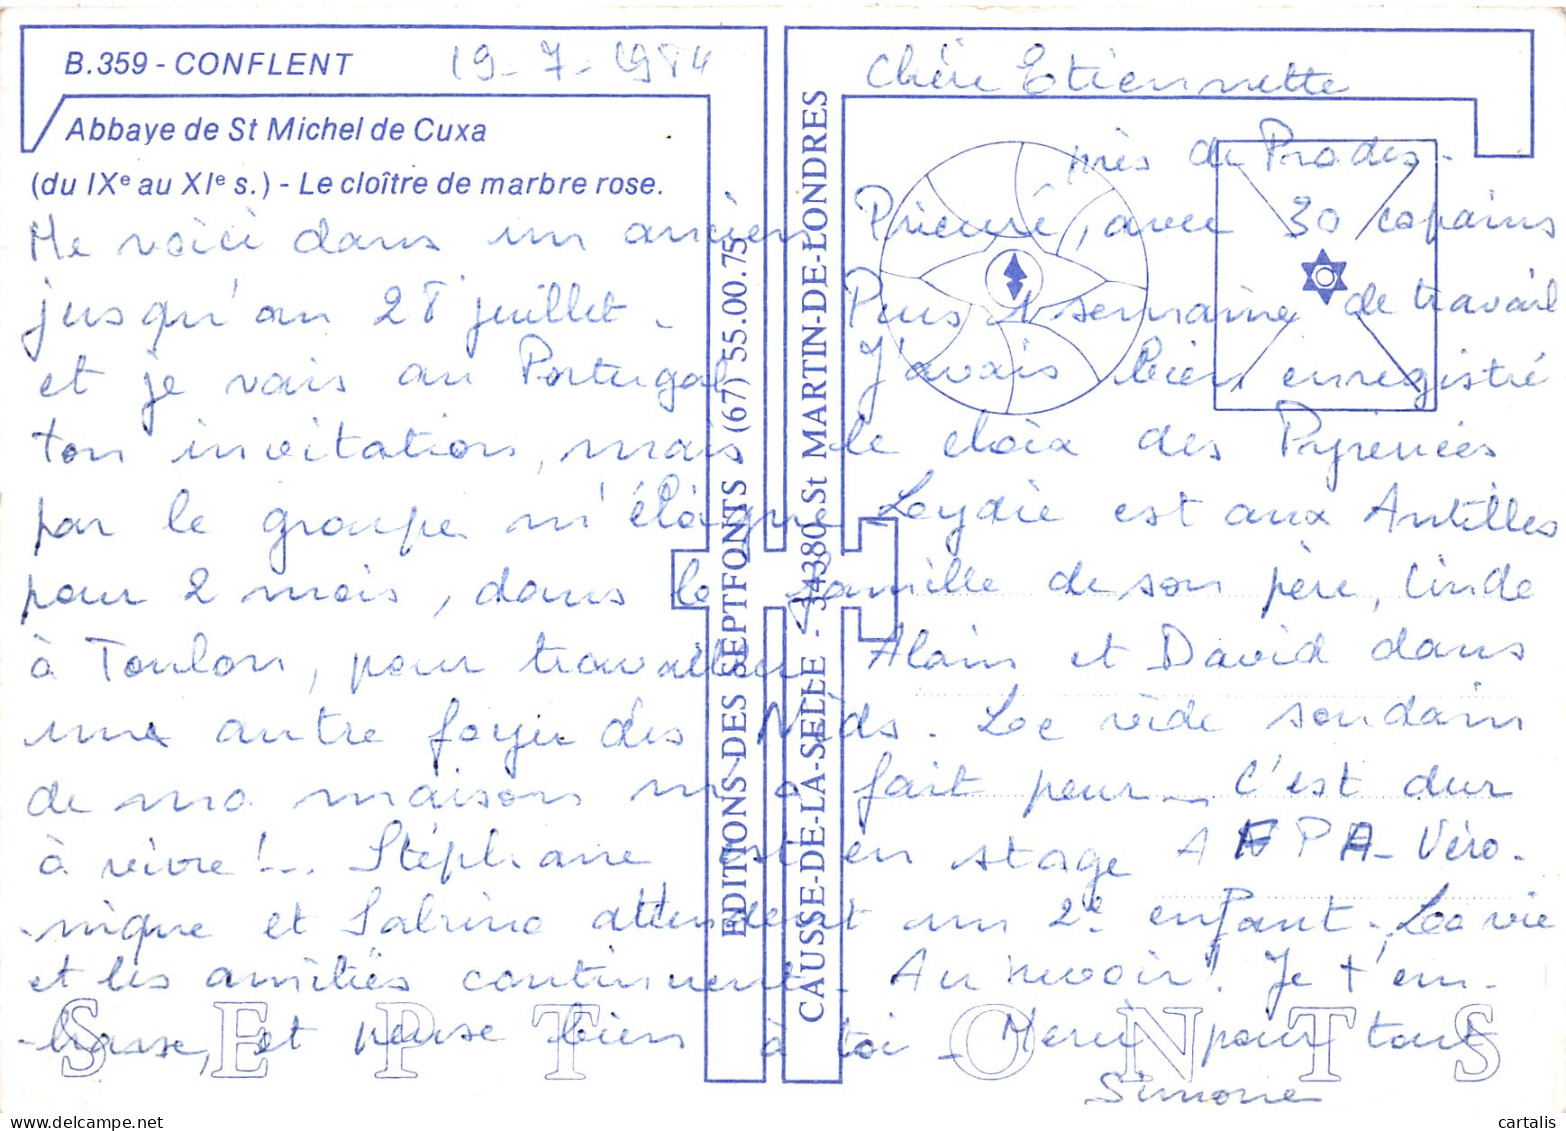 B.359 - CONFLENT
19-7-1984
Abbaye de St Michel de Cuxa
(du IXe au XIe s.) - Le cloître de marbre rose.
Chère Etiennette
près de Prades.
Me voici dans un ancien Prieuré, avec 30 copains
jusqu'au 28 juillet. Puis 1 semaine de travail
et je vais au Portugal J'avais bien enregistré
ton invitation, mais le choix des Pyrenées
par le groupe m'éloigne Leydie est aux Antilles
pour 2 mois, dans la famille de son père, Linde
à Toulon, pour travailler Alain et David dans
une autre foyer des Nids. Le vide soudain
de ma maison m'a fait peur... C'est dur
à vivre !... Stéphane est en stage AFPA. Véro-
-nique et Sabrina attendent un 2e enfant. La vie
et les amitiés continuent. Au revoir ! Je t'em-
-brasse, et pense bien à toi. Merci pour tout
Simone
EDITIONS DES SEPTFONTS (67) 55.00.75
CAUSSE-DE-LA-SELLE - 34380 St MARTIN-DE-LONDRES
SEPT ONTS
cartalis